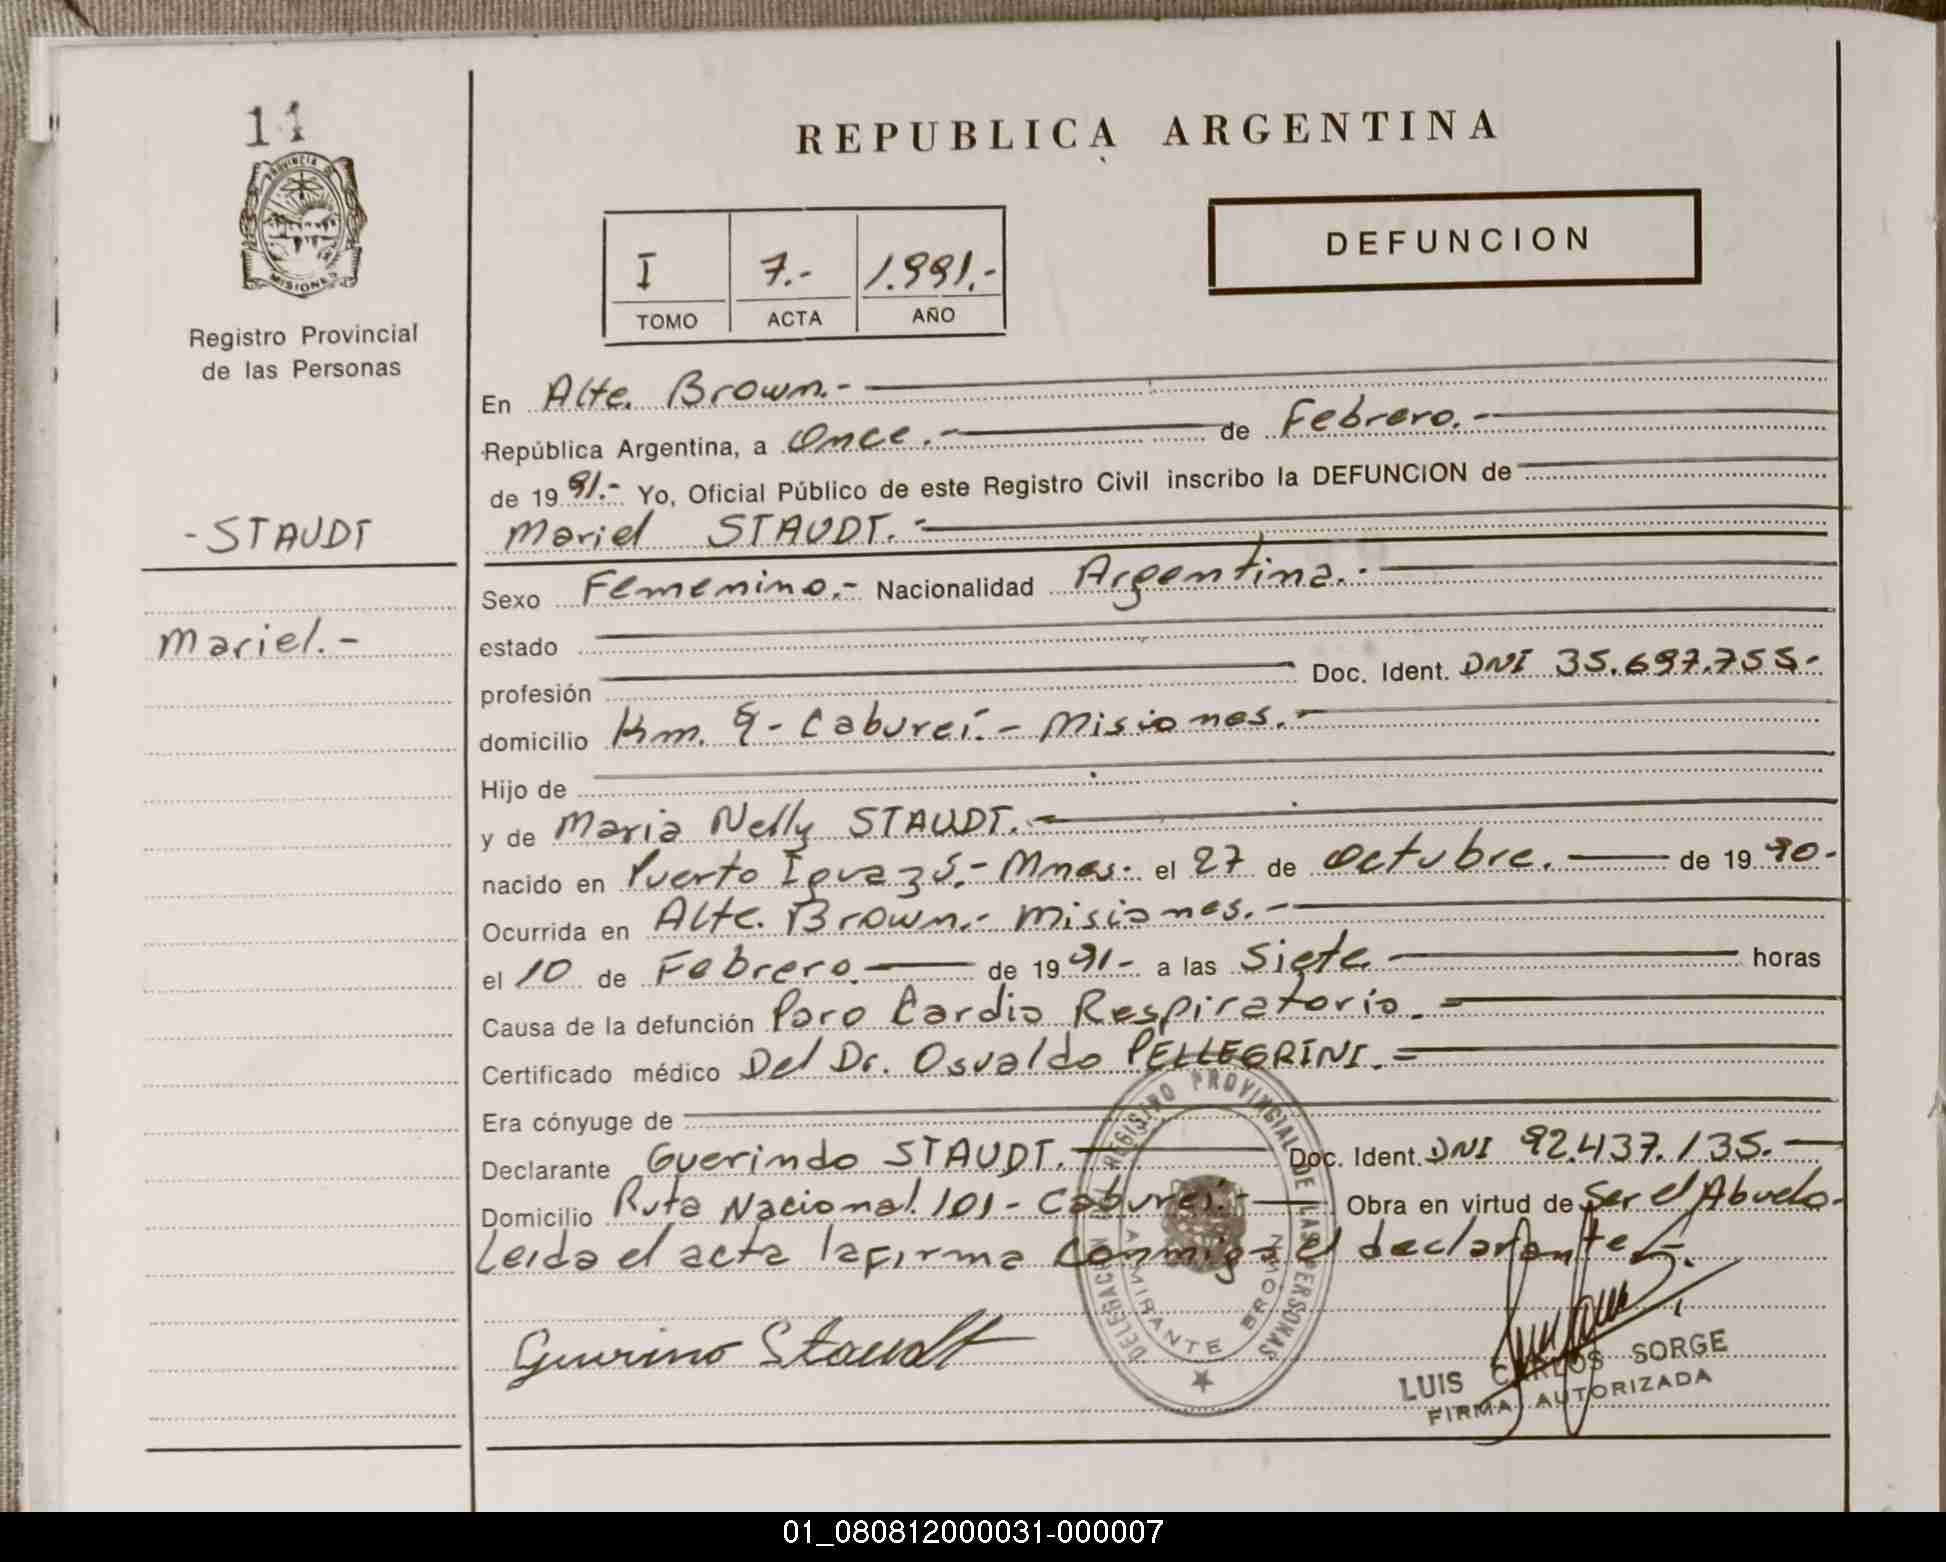 11
PROVINCIA DE
MISIONES
Registro Provincial
de las Personas
- STAUDT
Mariel.-
REPUBLICA ARGENTINA
DEFUNCION
I 7.- 1.991.-
TOMO ACTA AÑO
En Alte. Brown.-
República Argentina, a Once.- de Febrero.-
de 1991.- Yo, Oficial Público de este Registro Civil inscribo la DEFUNCION de
Mariel STAUDT.-
Sexo Femenino.- Nacionalidad Argentina.-
estado
profesión Doc. Ident. DNI 35.697.755-
domicilio Km. 9 - Cabureí.- Misiones.-
Hijo de
y de Maria Nelly STAUDT.-
nacido en Puerto Iguazú.- Mnes. el 27 de Octubre. de 1990-
Ocurrida en Alte. Brown.- Misiones.-
el 10 de Febrero. de 1991- a las Siete horas
Causa de la defunción Paro Cardio Respiratorio.
Certificado médico Del Dr. Osvaldo PELLEGRINI.=
Era cónyuge de
Declarante Guerindo STAUDT. Doc. Ident. DNI 92.437.135.-
Domicilio Ruta Nacional 101 - Cabureí.- Obra en virtud de Ser el Abuelo-
Leida el acta la firma conmigo el declarante.-
DELEGACION REGISTRO PROVINCIAL DE LAS PERSONAS
ALMIRANTE BROWN
Guerino Staudt
LUIS CARLOS SORGE
FIRMA AUTORIZADA
01_080812000031-000007